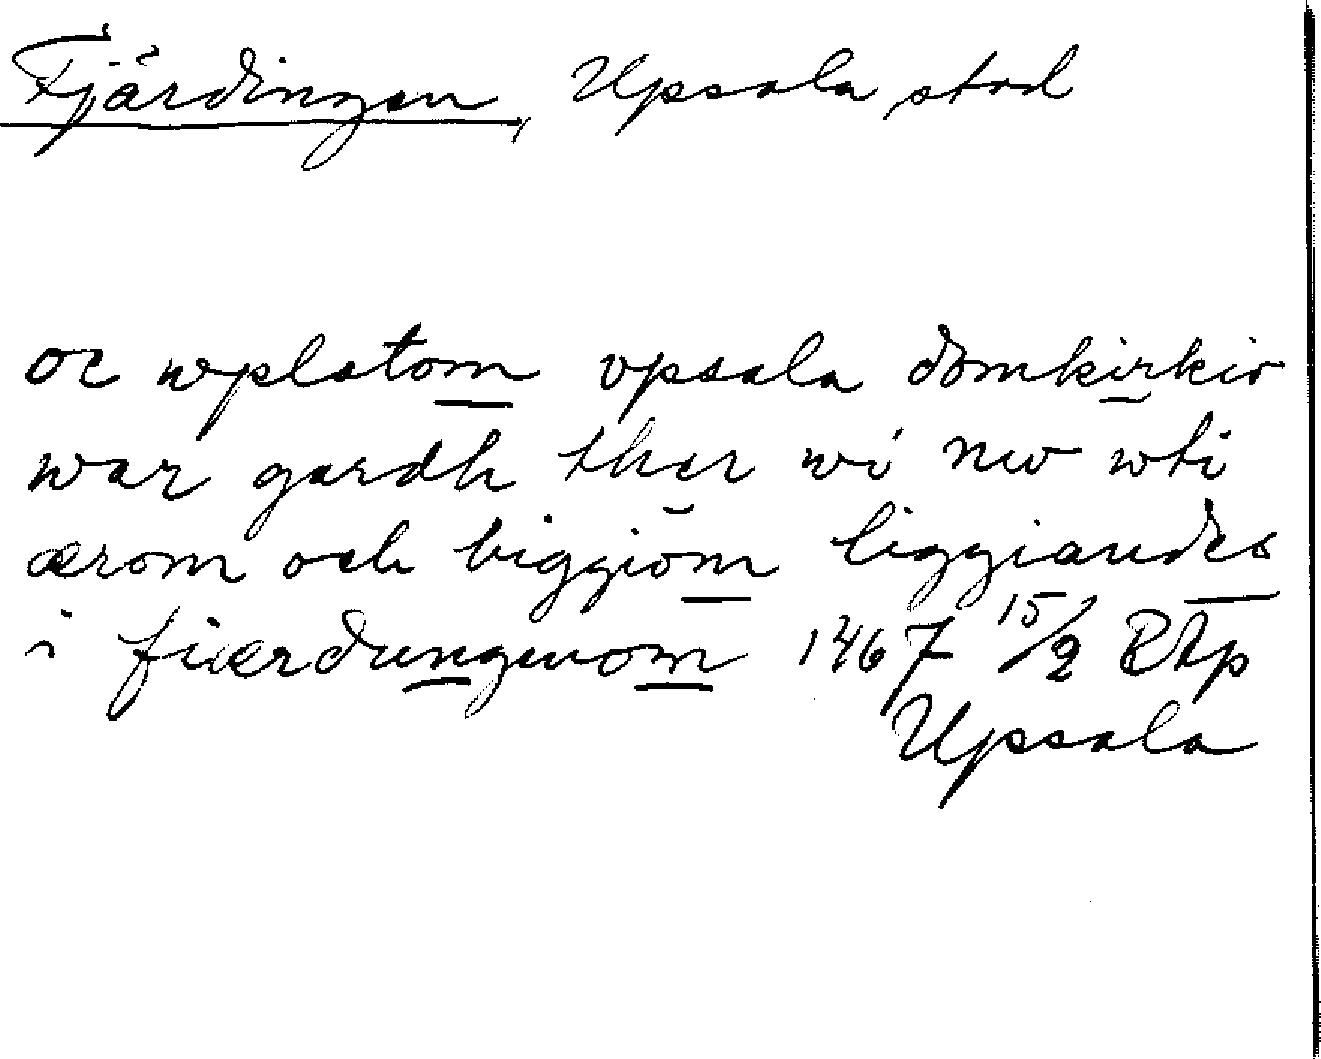 Fjärdingen, Upsala stad
oc wplatom vpsala domkirkio
war gardh ther wi nw wti
ærom och biggiom liggiandes
i fiærdungenom 1467 15/2 RAp
Upsala